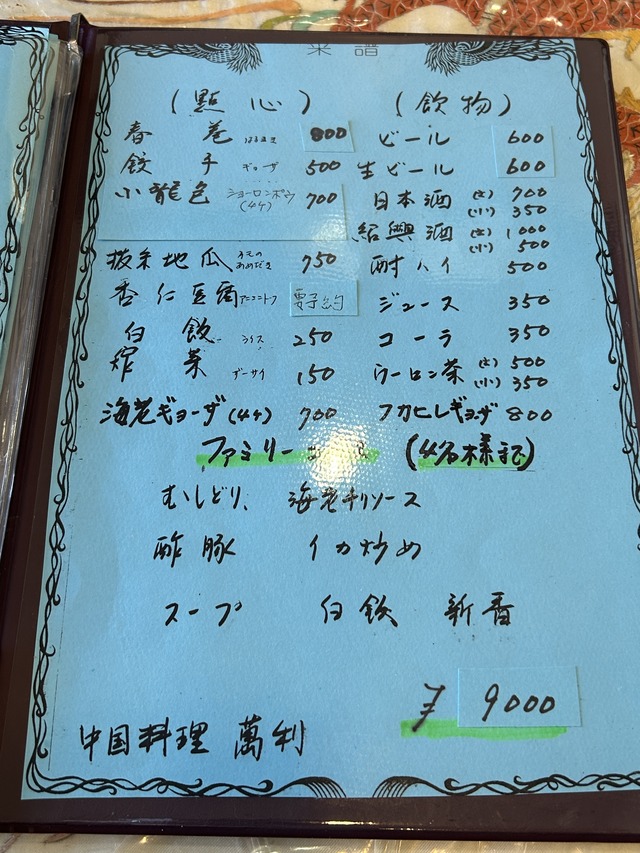 菜譜
(點心) (飲物)
春巻 はるまき 800 ビール 600
餃子 ギョーザ 500 生ビール 600
小籠包 ショーロンポウ (4ケ) 700 日本酒 (大) 700 (小) 350
紹興酒 (大) 1000 (小) 500
抜糸地瓜 750 酎ハイ 500
杏仁豆腐 アンニントウフ 要予約 ジュース 350
白飯 ライス 250 コーラ 350
炸菜 ザーサイ 150 ウーロン茶 (大) 500 (小) 350
海老ギョーザ (4ケ) 700 フカヒレギョーザ 800
ファミリー (4名様
むしどり、 海老チリソース
酢豚 イカ炒め
スープ 白飯 新香
¥ 9000
中国料理 萬利